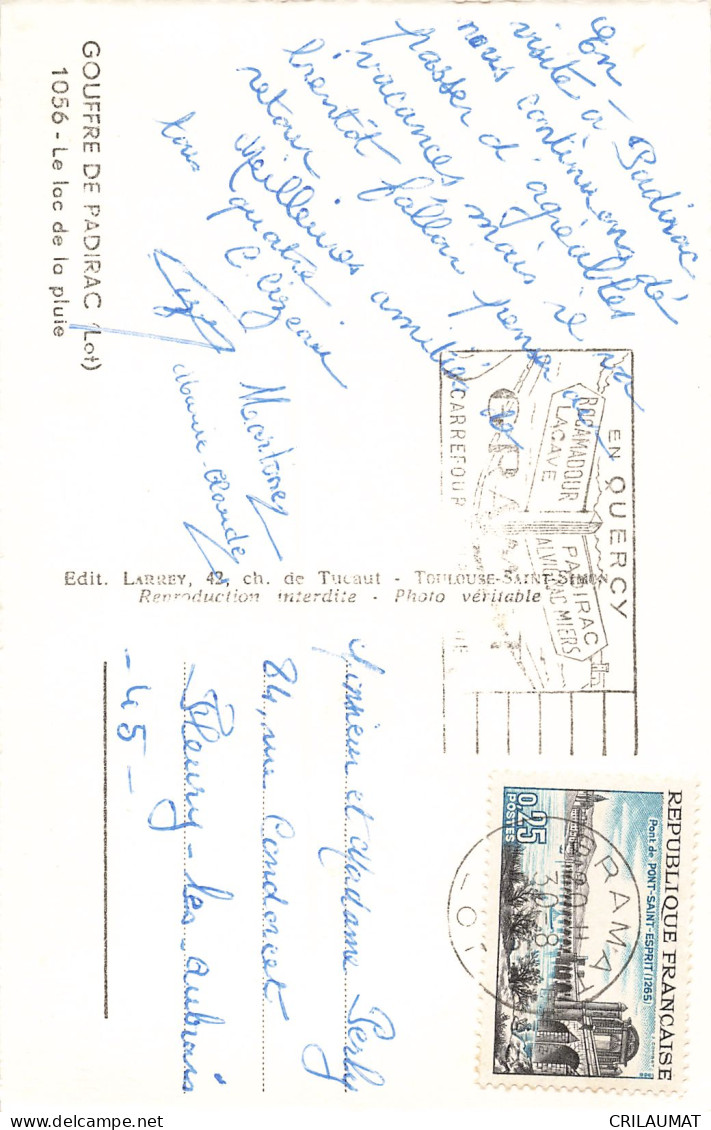 GOUFFRE DE PADIRAC (Lot)
1056 - Le lac de la pluie
En
visite à Padirac
nous continuons de
passer d'agréables
vacances mais il va
bientôt falloir penser au
retour
Meilleures amitiés de
tous quatre
Marie-Claude
Edit. LARREY, 42, ch. de Tucaut - TOULOUSE-SAINT-SIMON
Reproduction interdite - Photo véritable
EN QUERCY
ROCAMADOUR
LACAVE
PADIRAC
ALVIGNAC MIERS
GRAMAT
CARREFOUR
REPUBLIQUE FRANÇAISE
Pont de PONT-SAINT-ESPRIT (1265)
0,25
POSTES
30-8
Monsieur et Madame Perly
84, rue Condorcet
Fleury-les-Aubrais
-45-
CRILAUMAT